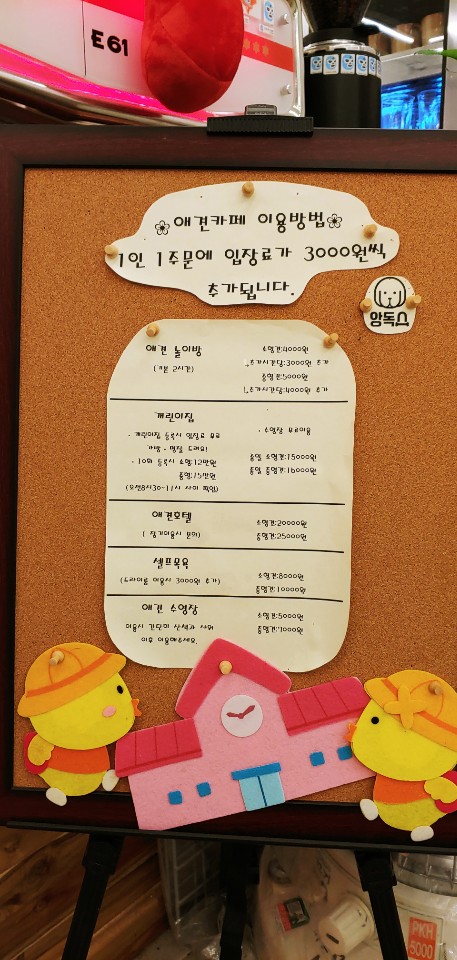 E61
애견카페 이용방법
1인 1주문에 입장료가 3000원씩
추가됩니다.
앙독스
애견 놀이방
(기본 2시간)
소형견:4000원
추가시간당:3000원 추가
중형견:5000원
추가시간당:4000원 추가
개린이집
· 개린이집 등록시 입장료 무료
가방 · 명찰 드려요!
· 10회 등록시 소형:12만원
중형:15만원
(오전8시30~11시 사이 픽업)
· 수영장 무료이용
종일 소형견:15000원
종일 중형견:18000원
애견호텔
( 장기이용시 문의)
소형견:20000원
중형견:25000원
셀프목욕
(드라이룸 이용시 3000원 추가)
소형견:8000원
중형견:10000원
애견 수영장
이용시 간단히 산책과 샤워
이후 이용해주세요.
소형견:5000원
중형견:7000원
PKH
5000